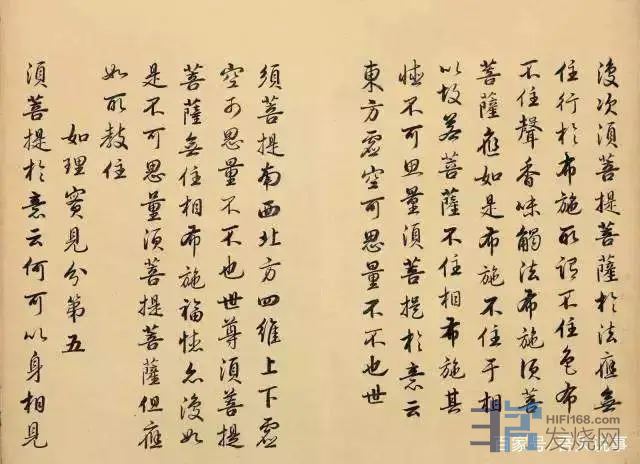 復次須菩提菩薩於法應無
住行於布施所謂不住色布
不住聲香味觸法布施須菩
菩薩應如是布施不住于相
以故若菩薩不住相布施其
德不可思量須菩提於意云
東方虛空可思量不不也世
須菩提南西北方四維上下虛
空可思量不不也世尊須菩提
菩薩無住相布施福德亦復如
是不可思量須菩提菩薩但應
如所教住
如理實見分第五
須菩提於意云何可以身相見
HIFI168.com
发烧网
百家号